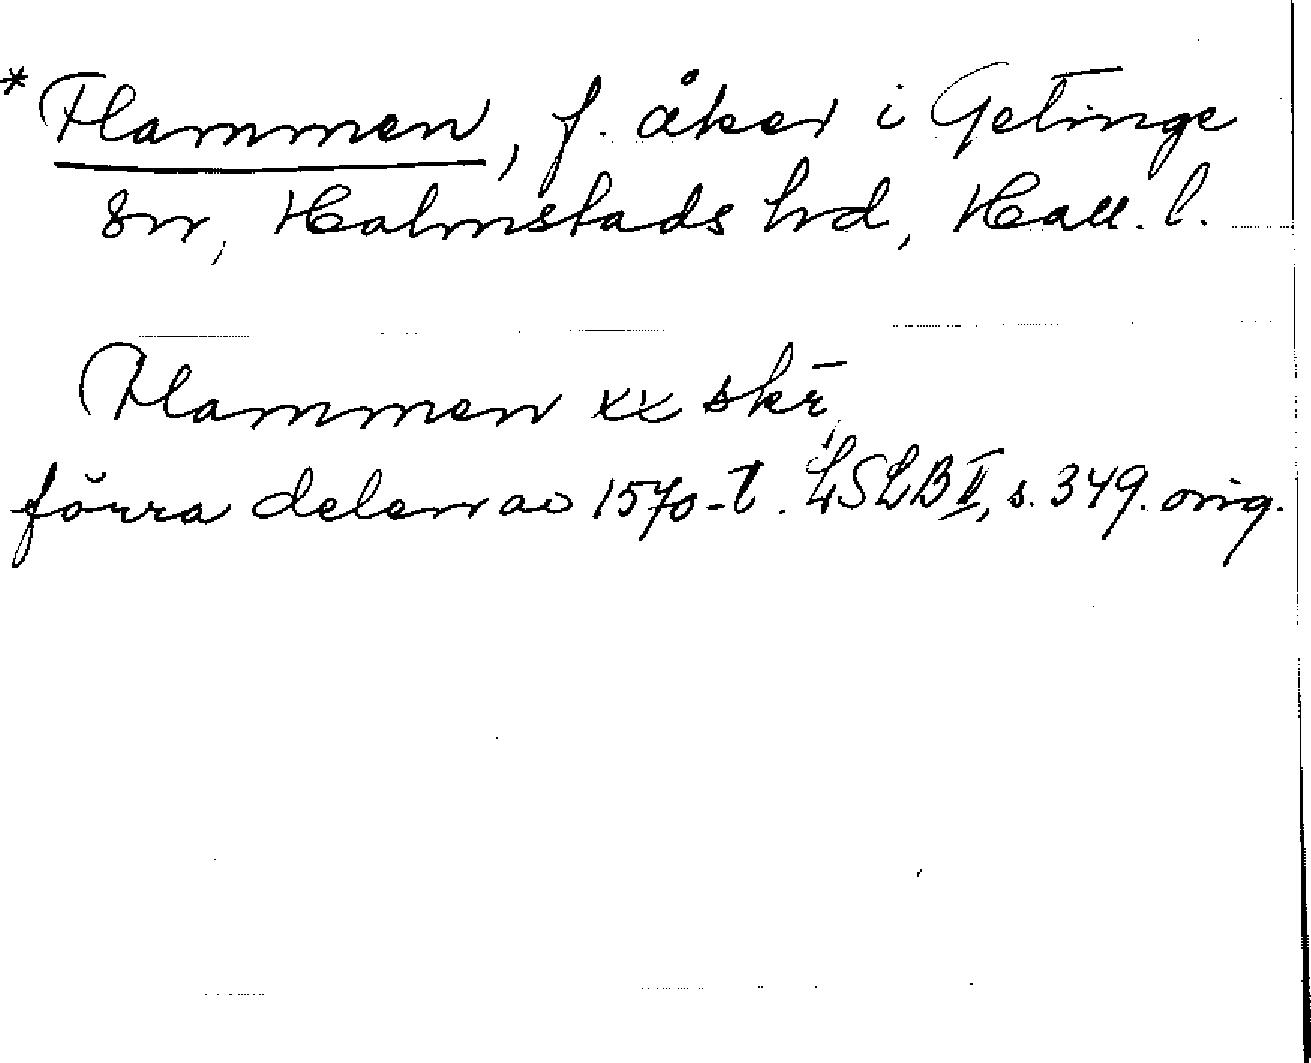 *Flammen, f. åker i Getinge
sn, Halmstads hd, Hall. l.
Flammen xx skr̄
förra delen av 1570-t. LSLB II, s. 349. orig.